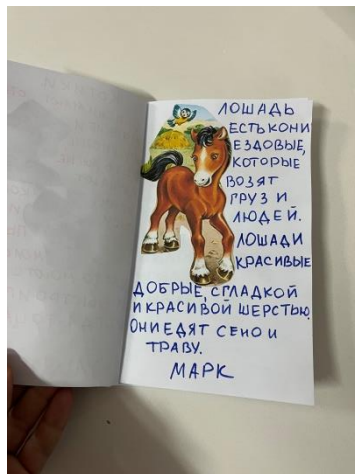 ЛОШАДЬ
ЕСТЬ КОНИ
ЕЗДОВЫЕ,
КОТОРЫЕ
ВОЗЯТ
ГРУЗ И
ЛЮДЕЙ.
ЛОШАДИ
КРАСИВЫЕ
ДОБРЫЕ, С ГЛАДКОЙ
И КРАСИВОЙ ШЕРСТЬЮ.
ОНИ ЕДЯТ СЕНО И
ТРАВУ.
МАРК